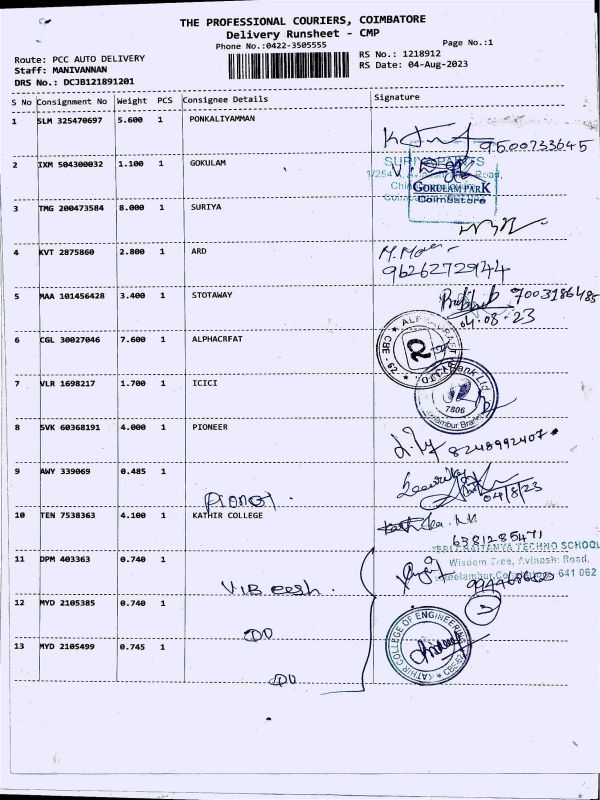 THE PROFESSIONAL COURIERS, COIMBATORE
Delivery Runsheet - CMP
Phone No.:0422-3505555
Page No.:1
Route: PCC AUTO DELIVERY
RS No.: 1218912
Staff: MANIVANNAN
RS Date: 04-Aug-2023
DRS No.: DCJB121891201
S No Consignment No Weight PCS Consignee Details Signature
1 SLM 325470697 5.600 1 PONKALIYAMMAN
9500733645
2 IXM 504300032 1.100 1 GOKULAM
GOKULAM PARK
Coimbatore
3 TMG 200473584 8.000 1 SURIYA
4 KVT 2875860 2.800 1 ARD
9626272944
5 MAA 101456428 3.400 1 STOTAWAY
7003186485
04.08.23
6 CGL 30027046 7.600 1 ALPHACRFAT
CBE - 62
7 VLR 1698217 1.700 1 ICICI
Bank Ltd
7806
8 SVK 60368191 4.000 1 PIONEER
8248992407
9 AWY 339069 0.485 1
04/8/23
10 TEN 7538363 4.100 1 KATHIR COLLEGE
11 DPM 403363 0.740 1
TECHNO SCHOOL
Wisdom Tree, Avinashi Road,
641 062
12 MYD 2105385 0.740 1
DO
13 MYD 2105499 0.745 1
KATHIR COLLEGE OF ENGINEERING
DO